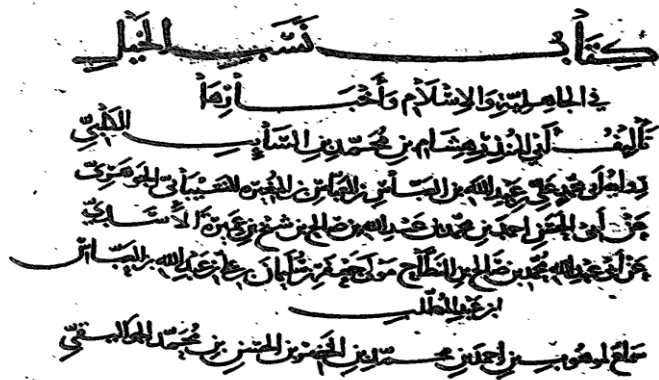 كِتَابُ نَسَبِ الخَيْلِ
فِي الجَاهِلِيَّةِ وَالإِسْلَامِ وَأَخْبَارِهَا
تَأْلِيفُ أَبِي المُنْذِرِ هِشَام بنِ مُحَمَّدِ بنِ السَّائِبِ الكَلْبِيِّ
رواية أبي محمد علي بن عبد الله بن العباس بن المغيرة الشيباني الجوهري
عن أبي الحسن أحمد بن محمد بن عبد الله بن صالح بن شيخ بن عميرة الأسدي
عن أبي عبد الله محمد بن صالح بن النطاح مولى جعفر بن سليمان بن علي بن عبد الله بن العباس
ابن عبد المطلب
سماع لموهوب بن أحمد بن محمد بن الخضر بن الحسن بن محمد الجواليقي